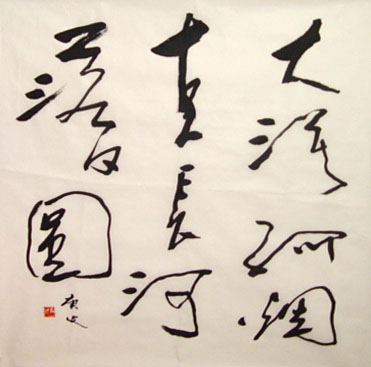 大漠孤烟
直長河
落日圓